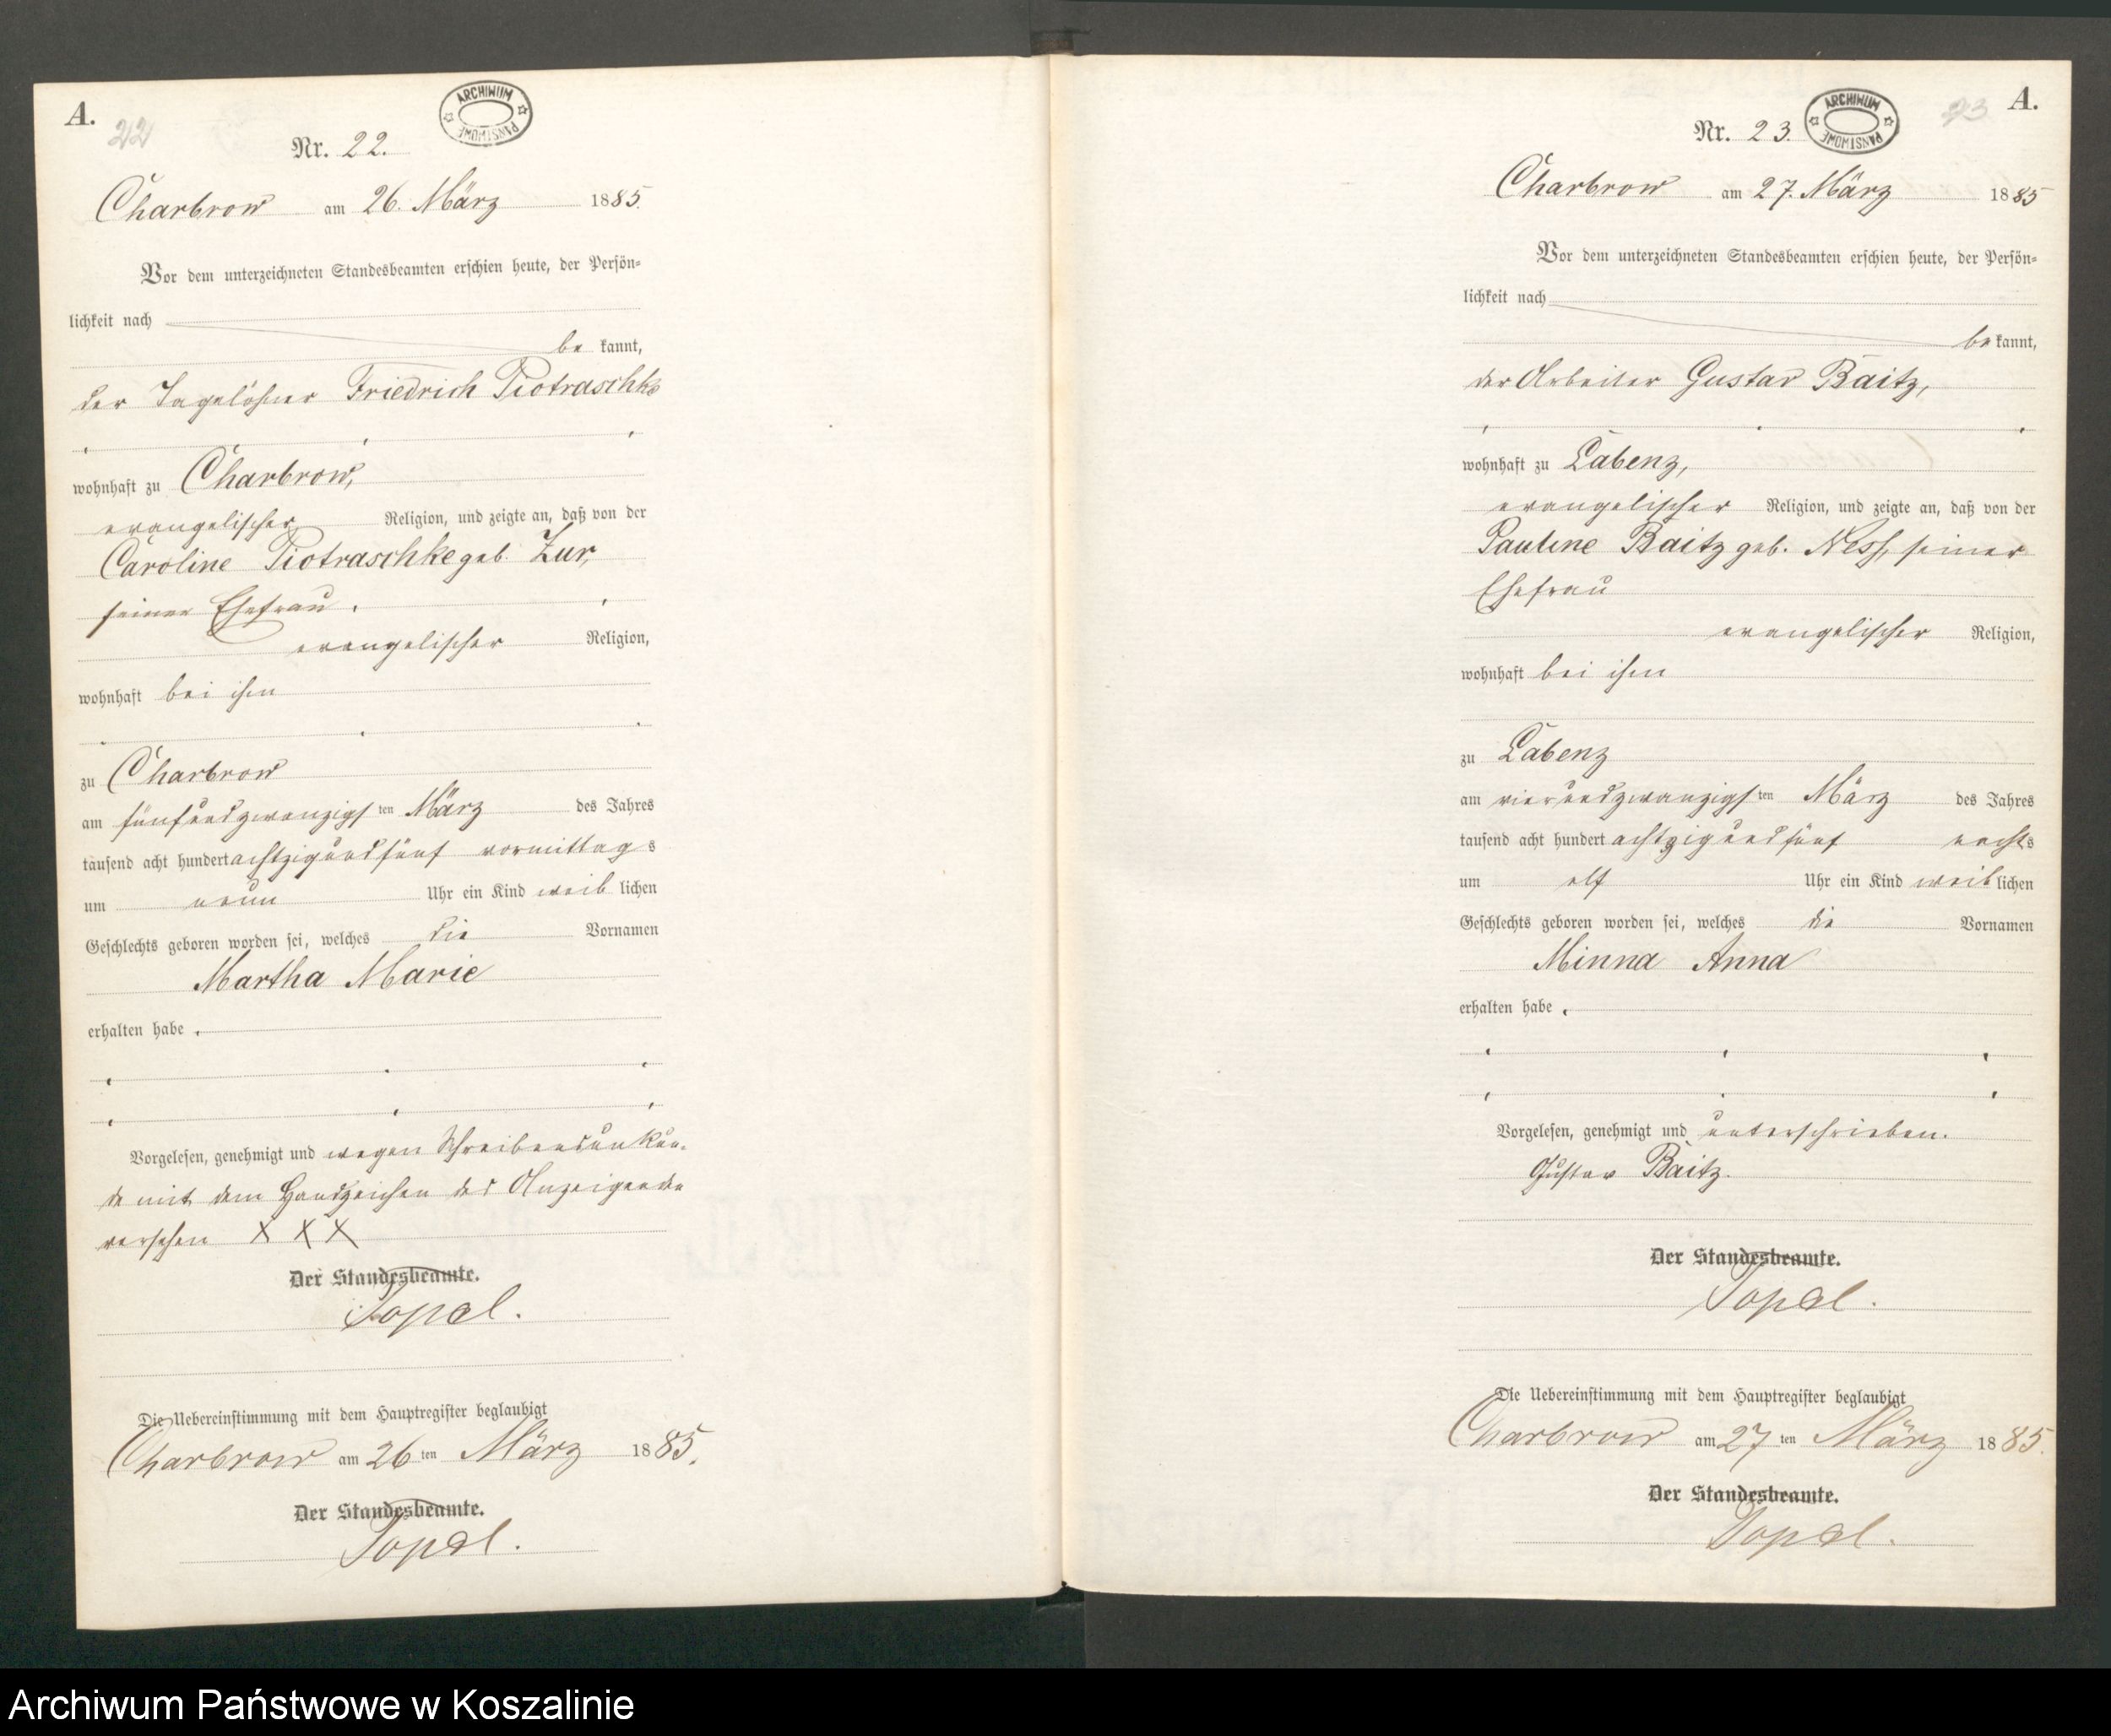 A.
22
ARCHIWUM PAŃSTWOWE
Nr. 22.
Charbrow am 26. März 1885.
Vor dem unterzeichneten Standesbeamten erschien heute, der Persön-
lichkeit nach
be kannt,
der Tagelöhner Friedrich Piotraschke
wohnhaft zu Charbrow,
evangelischer Religion, und zeigte an, daß von der
Caroline Piotraschke geb. Zur,
seiner Ehefrau,
evangelischer Religion,
wohnhaft bei ihm
zu Charbrow
am fünfundzwanzigsten März des Jahres
tausend acht hundert achtzigundfünf vormittags
um neun Uhr ein Kind weiblichen
Geschlechts geboren worden sei, welches die Vornamen
Martha Marie
erhalten habe.
Vorgelesen, genehmigt und wegen Schreibensunkun-
de mit dem Handzeichen des Anzeigenden
versehen X X X
Der Standesbeamte.
Topel.
Die Uebereinstimmung mit dem Hauptregister beglaubigt
Charbrow am 26ten März 1885.
Der Standesbeamte.
Topel.
A.
23
ARCHIWUM PAŃSTWOWE
Nr. 23.
Charbrow am 27. März 1885
Vor dem unterzeichneten Standesbeamten erschien heute, der Persön-
lichkeit nach
be kannt,
der Arbeiter Gustav Baitz,
wohnhaft zu Labenz,
evangelischer Religion, und zeigte an, daß von der
Pauline Baitz geb. Ness, seiner
Ehefrau
evangelischer Religion,
wohnhaft bei ihm
zu Labenz
am vierundzwanzigsten März des Jahres
tausend acht hundert achtzigundfünf nachts
um elf Uhr ein Kind weiblichen
Geschlechts geboren worden sei, welches die Vornamen
Minna Anna
erhalten habe.
Vorgelesen, genehmigt und unterschrieben.
Gustav Baitz.
Der Standesbeamte.
Topel.
Die Uebereinstimmung mit dem Hauptregister beglaubigt
Charbrow am 27ten März 1885.
Der Standesbeamte.
Topel.
Archiwum Państwowe w Koszalinie